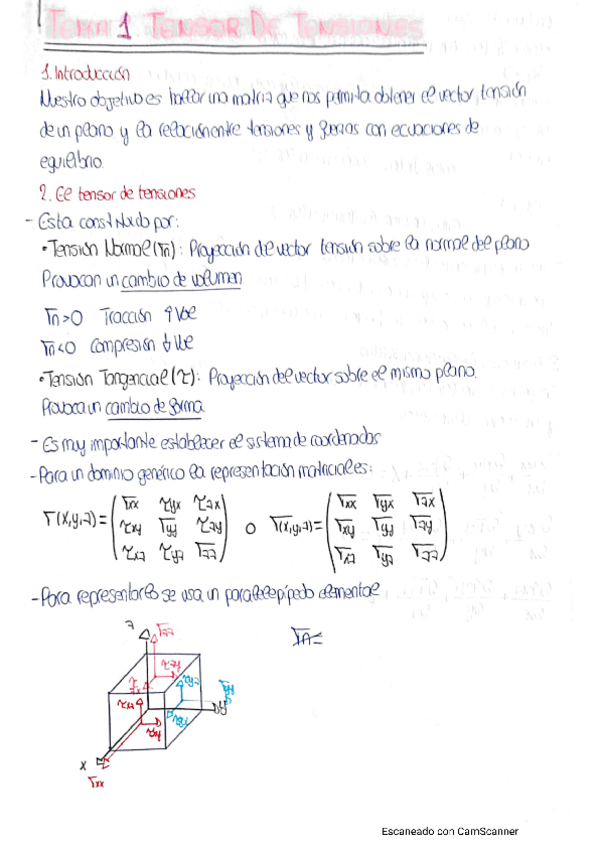 TEMA 1. TENSOR DE TENSIONES
1. Introducción
Nuestro objetivo es hallar una matriz que nos permita obtener el vector tensión
de un plano y la relación entre tensiones y fuerzas con ecuaciones de
equilibrio.
2. El tensor de tensiones
- Esta constituido por:
• Tensión Normal (σn): Proyección del vector tensión sobre la normal del plano
Provocan un cambio de volumen
σn>0 Tracción ↑ Vol
σn<0 Compresión ↓ Vol
• Tensión Tangencial (τ): Proyección del vector sobre el mismo plano.
Provoca un cambio de forma
- Es muy importante establecer el sistema de coordenadas
- Para un dominio genérico la representación matricial es:
σxx τyx τzx σxx σyx σzx
σ(x,y,z) = τxy σyy τzy o σ(x,y,z) = σxy σyy σzy
τxz τyz σzz σxz σyz σzz
- Para representarlos se usa un paralelepípedo elemental
z σzz
τzy
τyz σyy
τxz y
τxy
x
σxx
Escaneado con CamScanner